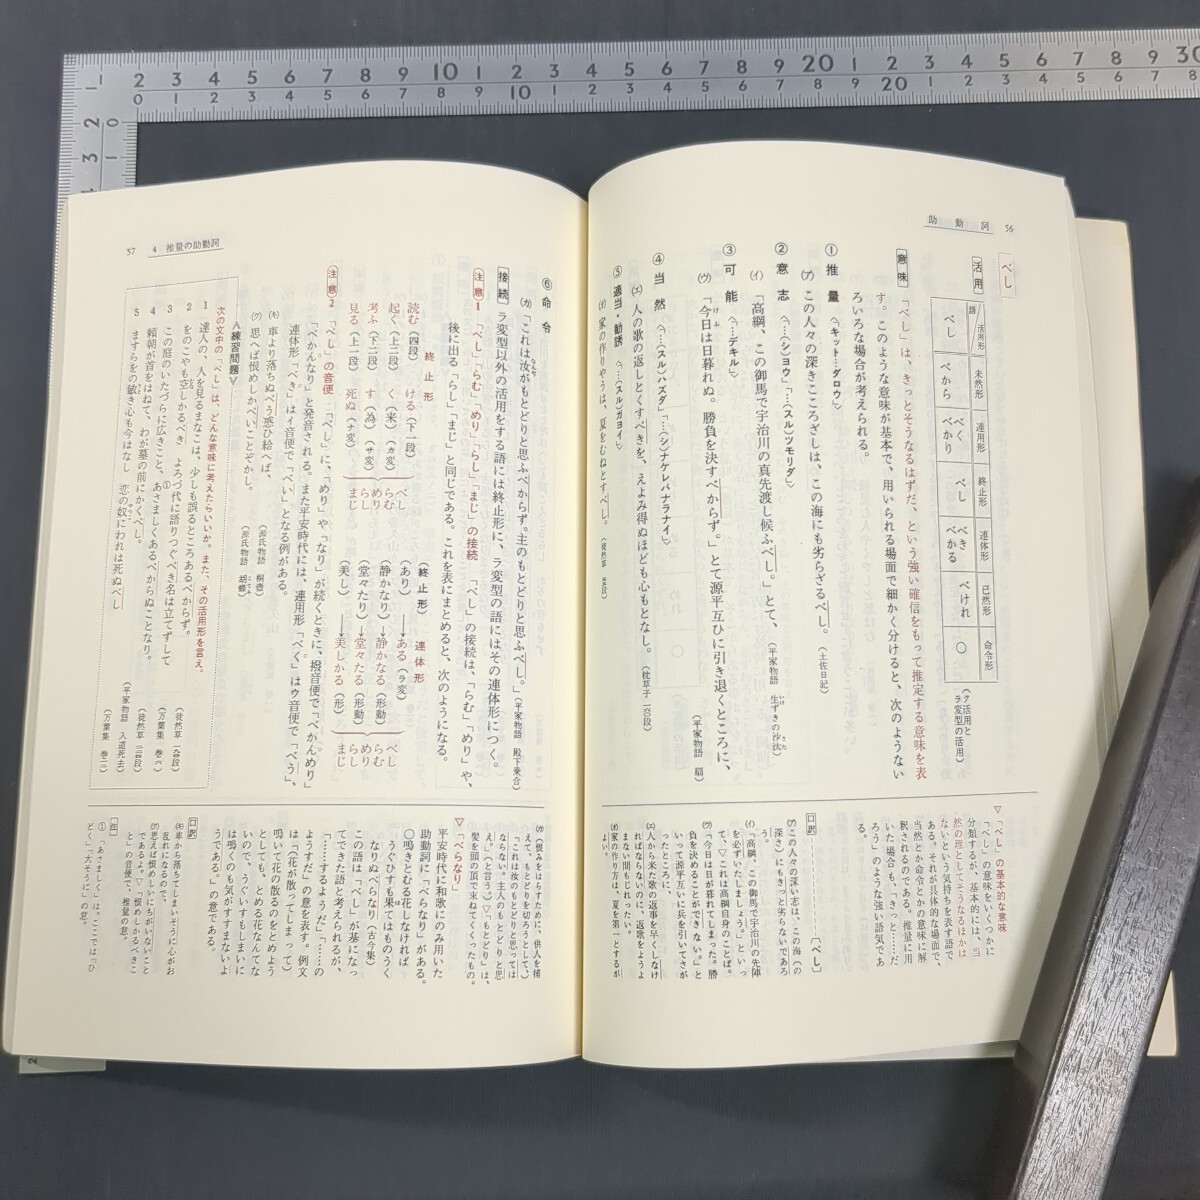 助動詞 56
べし
活用
語 活用形 未然形 連用形 終止形 連体形 已然形 命令形
べし べから べく べかり べし べき べかる べけれ ○
(ク活用とラ変型の活用)
意味 「べし」は、きっとそうなるはずだ、という強い確信をもって推定する意味を表
す。このような意味が基本で、用いられる場面で細かく分けると、次のようない
ろいろな場合が考えられる。
① 推量〈キット…ダロウ〉
(ア) この人々の深きこころざしは、この海にも劣らざるべし。(土佐日記)
② 意志〈…(シ)ヨウ」「…(スル)ツモリダ〉
(イ) 「高綱、この御馬で宇治川の真先渡し候ふべし。」とて、(平家物語 生ずきの沙汰)
③ 可能〈…デキル〉
(ウ) 「今日は日暮れぬ。勝負を決すべからず。」とて源平互ひに引き退くところに、
(平家物語 扇)
④ 当然〈…(スル)ハズダ」「…(シ)ナケレバナラナイ〉
(エ) 人の歌の返しとくすべきを、えよみ得ぬほども心もとなし。(枕草子 一六〇段)
⑤ 適当・勧誘〈…(スル)ガヨイ〉
(オ) 家の作りやうは、夏をむねとすべし。(徒然草 五五段)
▽「べし」の基本的な意味
「べし」の意味をいくつかに
分類するが、基本的には、当
然の理としてそうなるほかは
ないという気持ちを表す語で
ある。それが具体的な場面で、
当然とか命令とかの意味に解
釈されるのである。推量に用
いた場合も、「きっと……だ
ろう」のような強い語気であ
る。
口訳 [べし]
(ア)この人々の深い志は、この海(の
深さ)にもきっと劣らないであろ
う。
(イ)「高綱、この御馬で宇治川の先陣
を必ずいたしましょう。」といっ
て、▽これは高綱自身のことば。
(ウ)「今日は日が暮れてしまった。勝
負を決めることができない。」と
いって源平互いに兵を引いてさが
ったところに、
(エ)人から来た歌の返事を早くしなけ
ればならないのに、返歌をようよ
まない間もじれったい。
(オ)家の作り方は、夏を第一とするが
よい。
57 4 推量の助動詞
⑥ 命令
(カ) 「これは汝がもとどりと思ふべからず。主のもとどりと思ふべし。」(平家物語 殿下乗合)
接続 ラ変型以外の活用をする語には終止形に、ラ変型の語にはその連体形につく。
注意1 「べし」「らむ」「めり」「らし」「まじ」の接続 「べし」の接続は、「らむ」「めり」や、
後に出る「らし」「まじ」と同じである。これを表にまとめると、次のようになる。
終止形
読む(四段) ける(下一段)
起く(上二段) く(来)(カ変)
考ふ(下二段) す(為)(サ変)
見る(上一段) 死ぬ(ナ変)
べし らむ めり らし まじ
(終止形) 連体形
(あり)→ある(ラ変)
(静かなり)→静かなる(形動)
(堂々たり)→堂々たる(形動)
(美し)→美しかる(形)
べし らむ めり らし まじ
注意2 「べし」の音便 「べし」に、「めり」や「なり」が続くときに、撥音便で「べかんめり」
「べかんなり」と発音される。また平安時代には、連用形「べく」はウ音便で「べう」、
連体形「べき」はイ音便で「べい」となる例がある。
(キ) 車より落ちぬべう惑ひ給へば、(源氏物語 桐壺)
(ク) 思へば恨めしかべいことぞかし。(源氏物語 胡蝶)
〈練習問題〉
次の文中の「べし」は、どんな意味に考えたらいいか。また、その活用形を言え。
1 達人の、人を見るまなこは、少しも誤るところあるべからず。(徒然草 一九四段)
2 をのこやも空しかるべき よろづ代に語りつぐべき名は立てずして(万葉集 巻六)
3 この庭のいたづらに広きこと、あさましくあるべからぬことなり。
4 頼朝が首をはねて、わが墓の前にかくべし。(平家物語 入道死去)
5 ますらをの敏き心も今はなし 恋の奴にわれは死ぬべし(万葉集 巻一二)
(カ)恨みをはらすために、供人を捕
えて、もとどりを切ろうとして、)
「これは汝のもとどりと思っては
ならない。主人のもとどりと思
え。」(と言う。)▽「もとどり」は、
髪を頭の頂で束ねてくくったもの。
▽「べらなり」
平安時代に和歌にのみ用いた
助動詞に「べらなり」がある。
○鳴きとむる花しなければ
うぐひすも果てはものうく
なりぬべらなり(古今集)
この語は「べし」が基になっ
てできた語と考えられるが、
「……するようだ」「……の
ようすだ」の意を表す。例文
は「(花が散ってしまって)
鳴いて花の散るのをとめよう
としても、とめる花なんてな
いので、うぐいすもしまいに
は鳴くのも気がすすまないよ
うである。」の意である。
口訳
(キ)車から落ちてしまいそうに心がお
乱れになるので、
(ク)思えば恨めしいにちがいないこと
であるよ。▽「恨めしかるべきこ
と」の音便で、推量の意。
注
①「あさましく」は、ここでは「ひ
どく」「大そうに」の意。